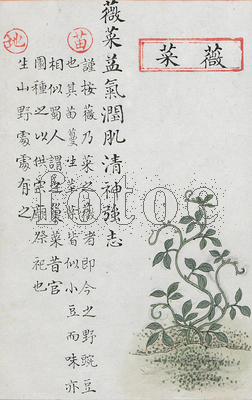 薇菜
薇菜益氣潤肌清神強志
苗
謹按薇乃菜之微者即今之野豌豆
也其苗蔓生莖葉皆似小豆而味亦
相似蜀人謂之巢菜昔官
園種之以供宗廟祭祀也
地
生山野處處有之